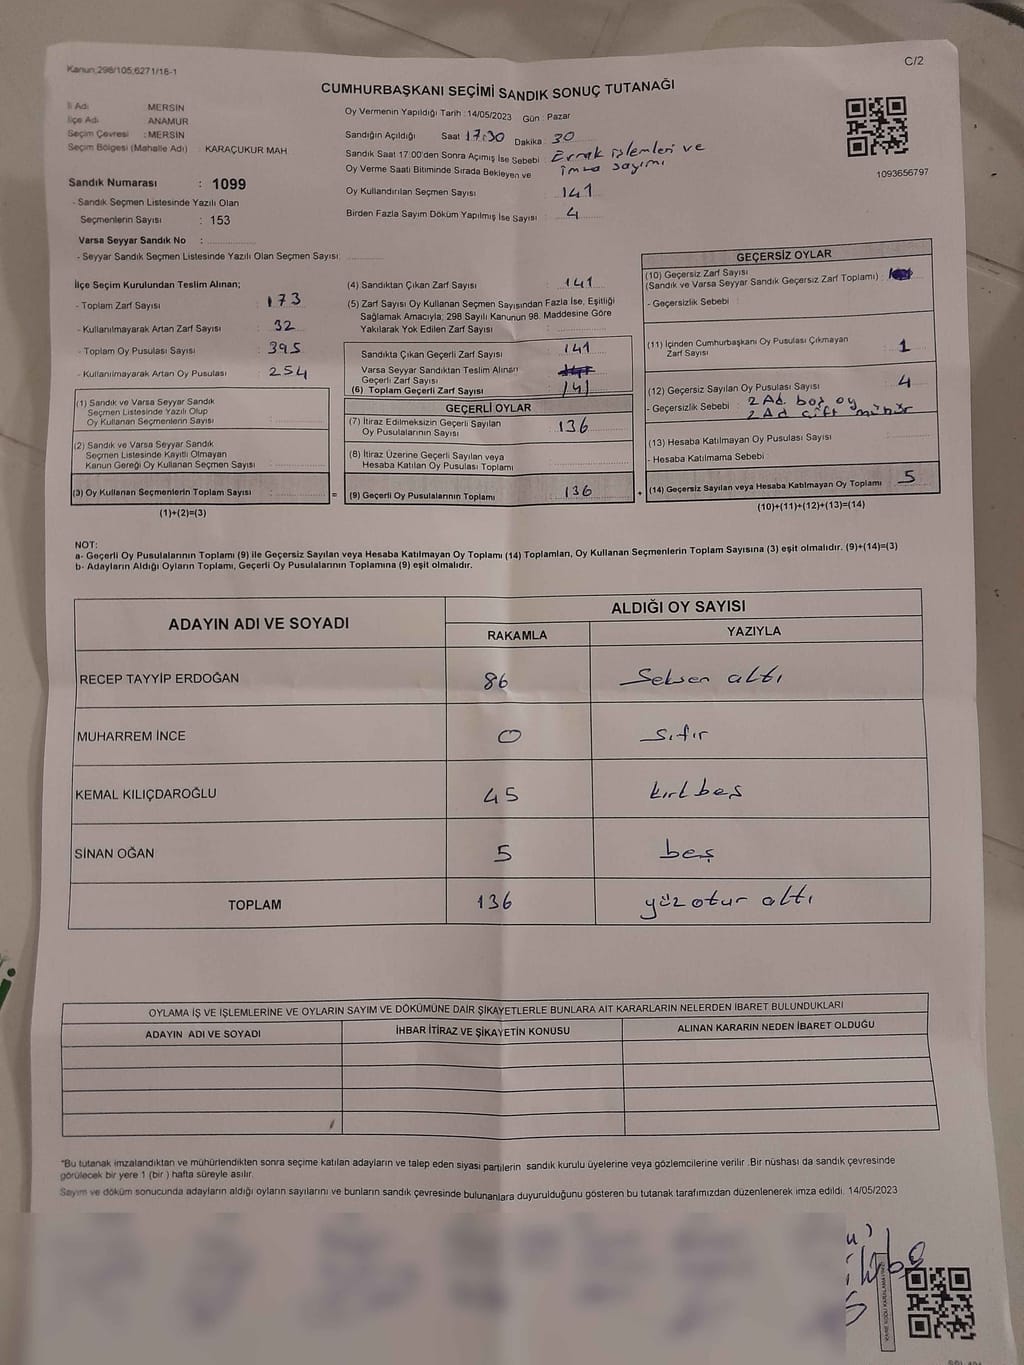 Kanun;298/105;6271/16-1
C/2
CUMHURBAŞKANI SEÇİMİ SANDIK SONUÇ TUTANAĞI
İl Adı MERSİN
İlçe Adı ANAMUR
Seçim Çevresi : MERSİN
Seçim Bölgesi (Mahalle Adı) : KARAÇUKUR MAH
Oy Vermenin Yapıldığı Tarih : 14/05/2023 Gün : Pazar
Sandığın Açıldığı Saat 17:30 Dakika 30
Sandık Saat 17:00'den Sonra Açımış İse Sebebi : Evrak işlemleri ve
Oy Verme Saati Bitiminde Sırada Bekleyen ve imza sayımı
Oy Kullandırılan Seçmen Sayısı : 141
Birden Fazla Sayım Döküm Yapılmış İse Sayısı : 4
1093656797
Sandık Numarası : 1099
- Sandık Seçmen Listesinde Yazılı Olan
Seçmenlerin Sayısı : 153
Varsa Seyyar Sandık No :
- Seyyar Sandık Seçmen Listesinde Yazılı Olan Seçmen Sayısı:
İlçe Seçim Kurulundan Teslim Alınan;
- Toplam Zarf Sayısı : 173
- Kullanılmayarak Artan Zarf Sayısı : 32
- Toplam Oy Pusulası Sayısı : 395
- Kullanılmayarak Artan Oy Pusulası : 254
(1) Sandık ve Varsa Seyyar Sandık
Seçmen Listesinde Yazılı Olup
Oy Kullanan Seçmenlerin Sayısı :
(2) Sandık ve Varsa Seyyar Sandık
Seçmen Listesinde Kayıtlı Olmayan
Kanun Gereği Oy Kullanan Seçmen Sayısı :
(3) Oy Kullanan Seçmenlerin Toplam Sayısı : =
(1)+(2)=(3)
(4) Sandıktan Çıkan Zarf Sayısı : 141
(5) Zarf Sayısı Oy Kullanan Seçmen Sayısından Fazla İse, Eşitliği
Sağlamak Amacıyla; 298 Sayılı Kanunun 98. Maddesine Göre
Yakılarak Yok Edilen Zarf Sayısı :
Sandıkta Çıkan Geçerli Zarf Sayısı : 141
Varsa Seyyar Sandıktan Teslim Alınan
Geçerli Zarf Sayısı
(6) Toplam Geçerli Zarf Sayısı : 141
GEÇERLİ OYLAR
(7) İtiraz Edilmeksizin Geçerli Sayılan
Oy Pusulalarının Sayısı : 136
(8) İtiraz Üzerine Geçerli Sayılan veya
Hesaba Katılan Oy Pusulası Toplamı :
(9) Geçerli Oy Pusulalarının Toplamı : 136 +
GEÇERSİZ OYLAR
(10) Geçersiz Zarf Sayısı
(Sandık ve Varsa Seyyar Sandık Geçersiz Zarf Toplamı) :
- Geçersizlik Sebebi :
(11) İçinden Cumhurbaşkanı Oy Pusulası Çıkmayan
Zarf Sayısı : 1
(12) Geçersiz Sayılan Oy Pusulası Sayısı : 4
- Geçersizlik Sebebi : 2 Ad. boş oy
2 Ad çift mühür
(13) Hesaba Katılmayan Oy Pusulası Sayısı :
- Hesaba Katılmama Sebebi :
(14) Geçersiz Sayılan veya Hesaba Katılmayan Oy Toplamı : 5
(10)+(11)+(12)+(13)=(14)
NOT:
a- Geçerli Oy Pusulalarının Toplamı (9) ile Geçersiz Sayılan veya Hesaba Katılmayan Oy Toplamı (14) Toplamları, Oy Kullanan Seçmenlerin Toplam Sayısına (3) eşit olmalıdır. (9)+(14)=(3)
b- Adayların Aldığı Oyların Toplamı, Geçerli Oy Pusulalarının Toplamına (9) eşit olmalıdır.
ADAYIN ADI VE SOYADI
ALDIĞI OY SAYISI
RAKAMLA YAZIYLA
RECEP TAYYİP ERDOĞAN 86 Seksen altı
MUHARREM İNCE 0 sıfır
KEMAL KILIÇDAROĞLU 45 kırkbeş
SİNAN OĞAN 5 beş
TOPLAM 136 yüz otuz altı
OYLAMA İŞ VE İŞLEMLERİNE VE OYLARIN SAYIM VE DÖKÜMÜNE DAİR ŞİKAYETLERLE BUNLARA AİT KARARLARIN NELERDEN İBARET BULUNDUKLARI
ADAYIN ADI VE SOYADI İHBAR İTİRAZ VE ŞİKAYETİN KONUSU ALINAN KARARIN NEDEN İBARET OLDUĞU
*Bu tutanak imzalandıktan ve mühürlendikten sonra seçime katılan adayların ve talep eden siyasi partilerin sandık kurulu üyelerine veya gözlemcilerine verilir .Bir nüshası da sandık çevresinde
görülecek bir yere 1 (bir ) hafta süreyle asılır.
Sayım ve döküm sonucunda adayların aldığı oyların sayılarını ve bunların sandık çevresinde bulunanlara duyurulduğunu gösteren bu tutanak tarafımızdan düzenlenerek imza edildi. 14/05/2023